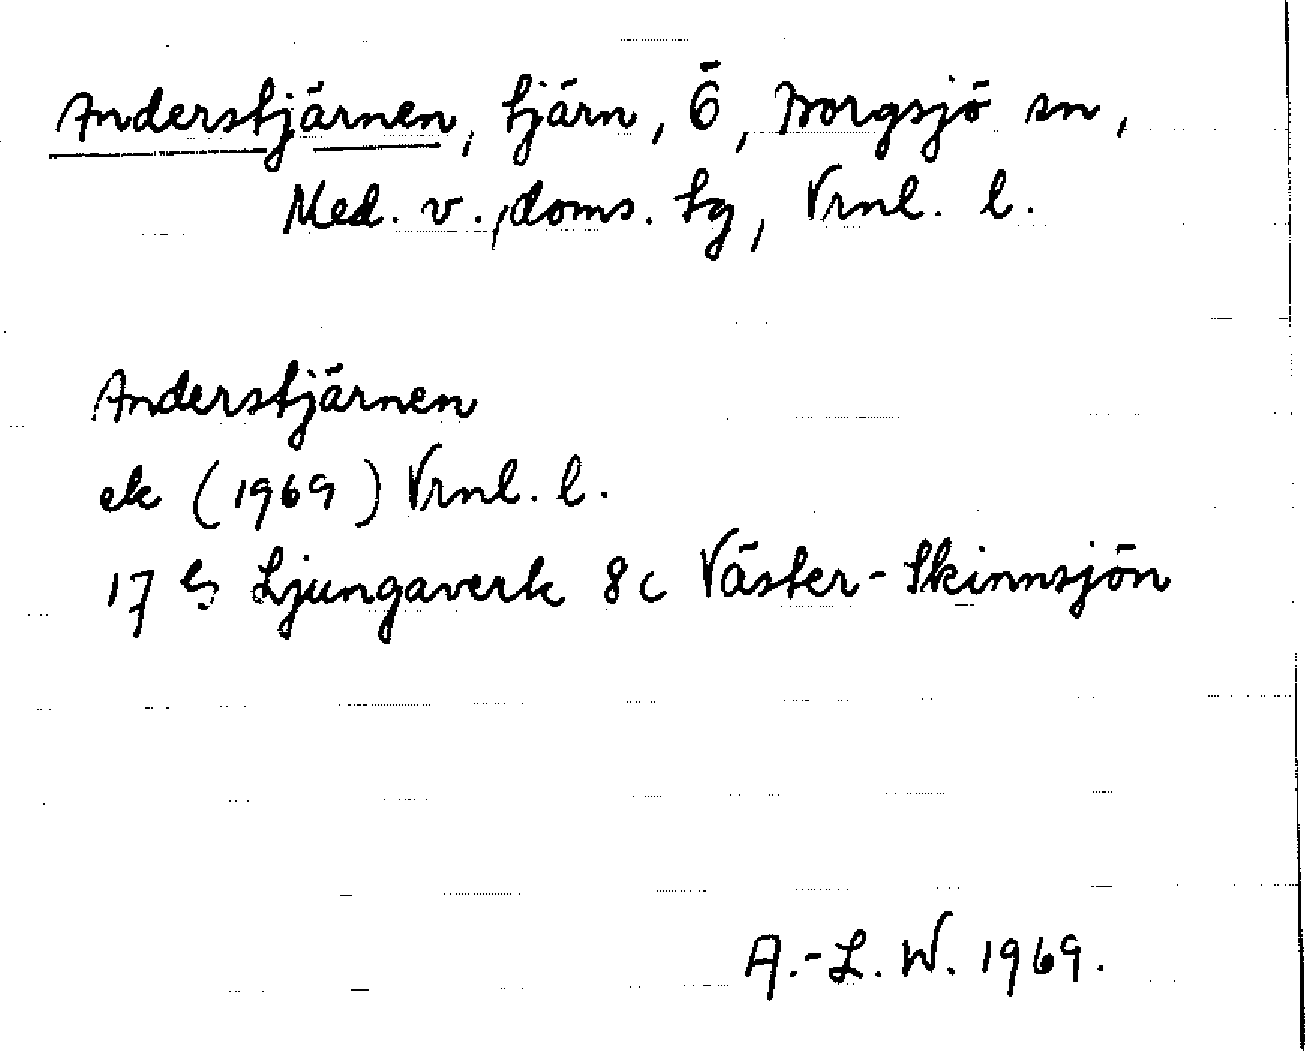 Anderstjärnen, tjärn, Ö, Borgsjö sn,
Med. v., doms. tg, Vrnl. l.
Anderstjärnen
ek (1969) Vrnl. l.
17 G Ljungaverk 8c Väster-Skinnsjön
A.-L. W. 1969.